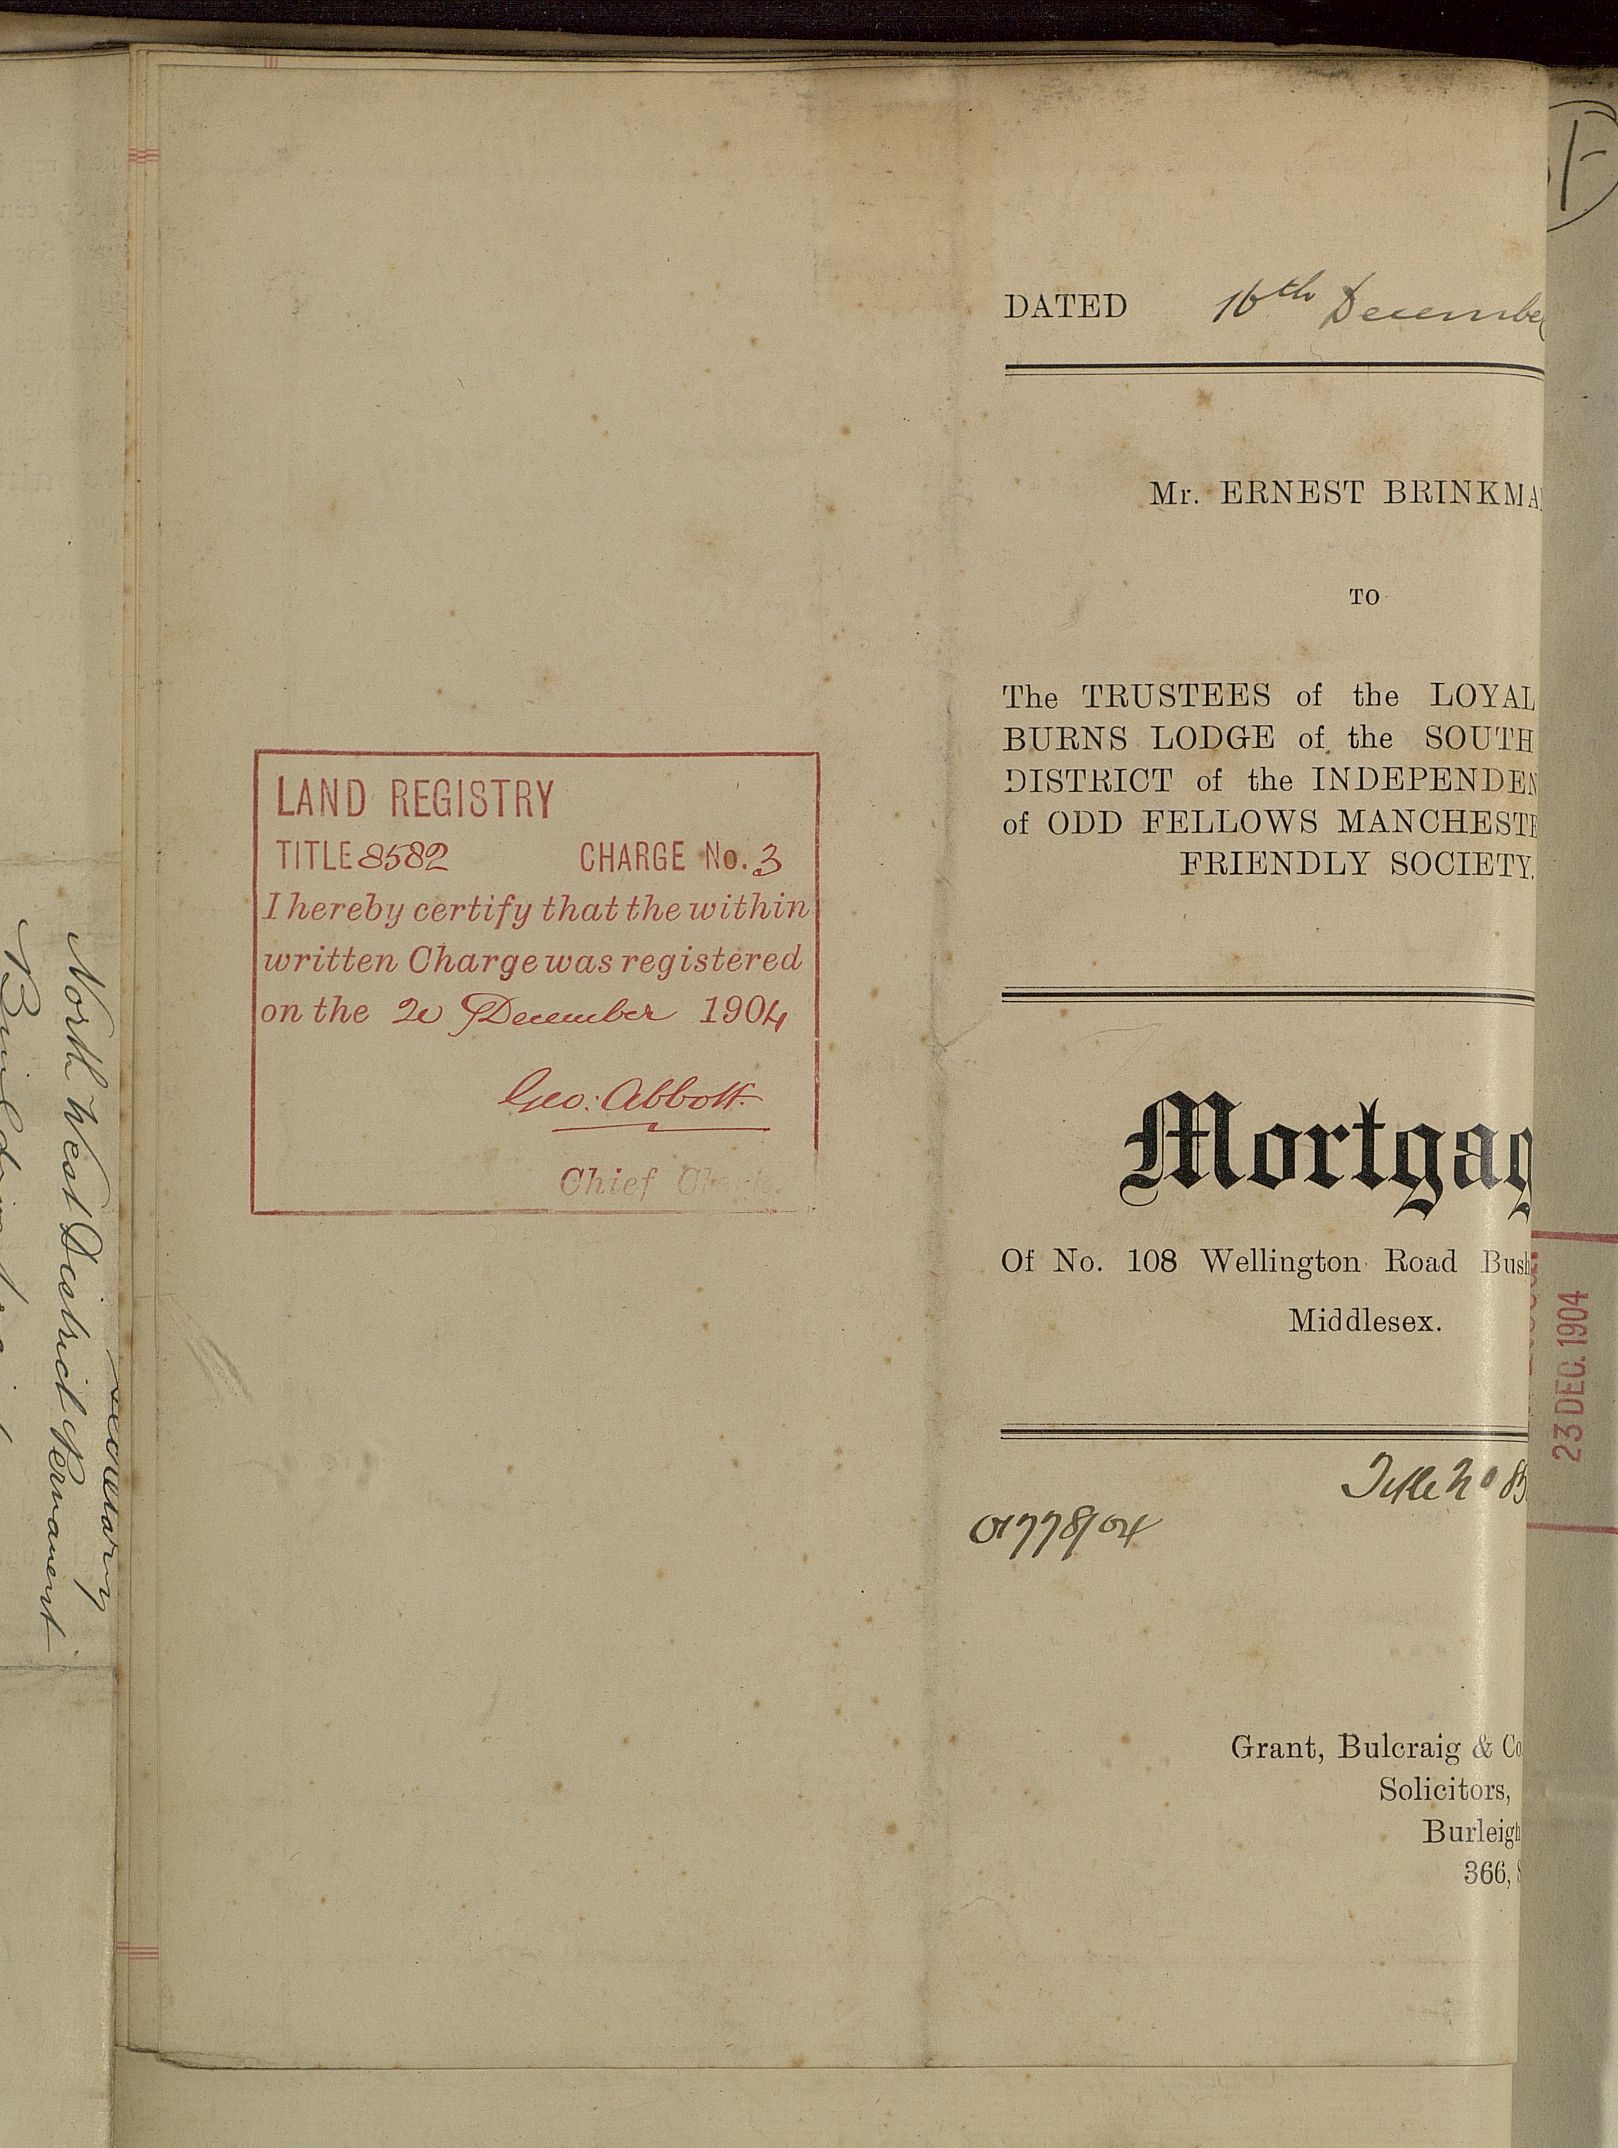 DATED 16th December
Mr. ERNEST BRINKMA
TO
The TRUSTEES of the LOYAL
BURNS LODGE of the SOUTH
DISTRICT of the INDEPENDEN
of ODD FELLOWS MANCHESTE
FRIENDLY SOCIETY.
Mortgag
Of No. 108 Wellington Road Bush
Middlesex.
Title No 85
01778/04
Grant, Bulcraig & Co
Solicitors,
Burleigh
366, S
LAND REGISTRY
TITLE 8582 CHARGE No. 3
I hereby certify that the within
written Charge was registered
on the 20 December 1904
Geo: Abbott
Chief Clerk.
23 DEC. 1904
Secretary
North West District Permanent